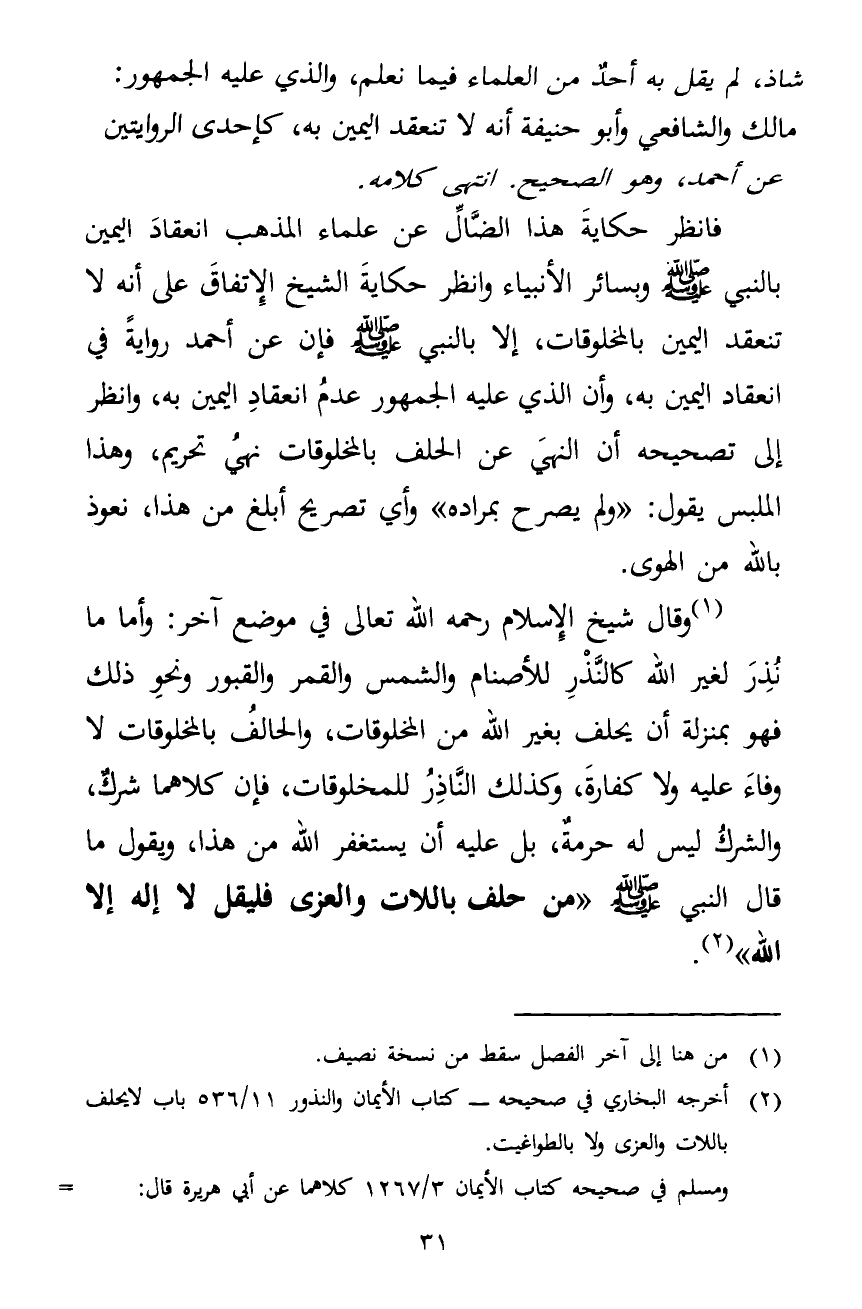 شاذ، لم يقل به أحدٌ من العلماء فيما نعلم، والذي عليه الجمهور:
مالك والشافعي وأبو حنيفة أنه لا تنعقد اليمين به، كإحدى الروايتين
عن أحمد، وهو الصحيح. انتهى كلامه.
فانظر حكايةَ هذا الضَّالِّ عن علماء المذهب انعقادَ اليمين
بالنبي ﷺ وبسائر الأنبياء وانظر حكايةَ الشيخ الإِتفاقَ على أنه لا
تنعقد اليمين بالمخلوقات، إلا بالنبي ﷺ فإن عن أحمد روايةً في
انعقاد اليمين به، وأن الذي عليه الجمهور عدمُ انعقادِ اليمين به، وانظر
إلى تصحيحه أن النهيَ عن الحلف بالمخلوقات نهيُ تحريم، وهذا
الملبس يقول: «ولم يصرح بمراده» وأي تصريح أبلغ من هذا، نعوذ
بالله من الهوى.
(١)وقال شيخ الإِسلام رحمه الله تعالى في موضع آخر: وأما ما
نُذِرَ لغير الله كالنَّذْرِ للأصنام والشمس والقمر والقبور ونحوِ ذلك
فهو بمنزلة أن يحلف بغير الله من المخلوقات، والحالفُ بالمخلوقات لا
وفاءَ عليه ولا كفارةَ، وكذلك النَّاذِرُ للمخلوقات، فإن كلاهما شركٌ،
والشركُ ليس له حرمةٌ، بل عليه أن يستغفر الله من هذا، ويقول ما
قال النبي ﷺ «من حلف باللات والعزى فليقل لا إله إلا
الله»(٢).
(١) من هنا إلى آخر الفصل سقط من نسخة نصيف.
(٢) أخرجه البخاري في صحيحه ــ كتاب الأيمان والنذور ٥٣٦/١١ باب لايحلف
باللات والعزى ولا بالطواغيت.
ومسلم في صحيحه كتاب الأيمان ١٢٦٧/٣ كلاهما عن أبي هريرة قال: =
٣١